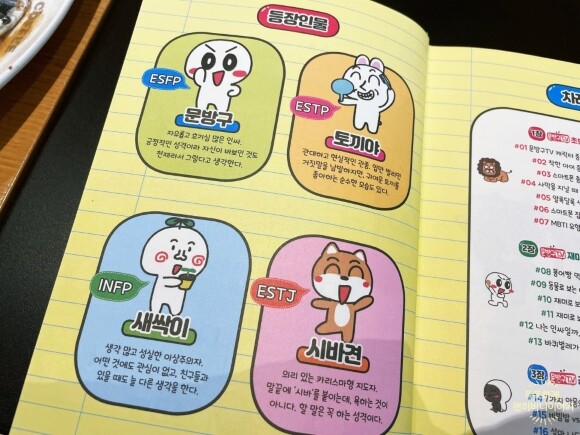 등장인물
ESFP
문방구
자유롭고 호기심 많은 인싸.
긍정적인 성격이라 자신이 바보인 것도
천재라서 그렇다고 생각한다.
ESTP
토끼야
관대하고 현실적인 관종. 입만 벌리면
거짓말을 남발하지만, 귀여운 토끼를
좋아하는 순수한 모습도 있다.
INFP
새싹이
생각 많고 성실한 이상주의자.
어떤 것에도 관심이 없고, 친구들과
있을 때도 늘 다른 생각을 한다.
ESTJ
시바견
의리 있는 카리스마형 지도자.
말끝에 '시바'를 붙이는데, 욕하는 것이
아니다. 할 말은 꼭 하는 성격이다.
1장
#01 문방구TV 캐릭터
#02 착한 아이
#03 스마트폰
#04 사막을 지날 때
#05 양목장
#06 스마트폰
#07 MBTI 유형
2장
#08 붕어빵 먹
#09 동물로 보는
#10 재미로
#11 재미로 보
#12 나는 인싸일까,
#13 바퀴벌레가
3장
#14
#15
#16